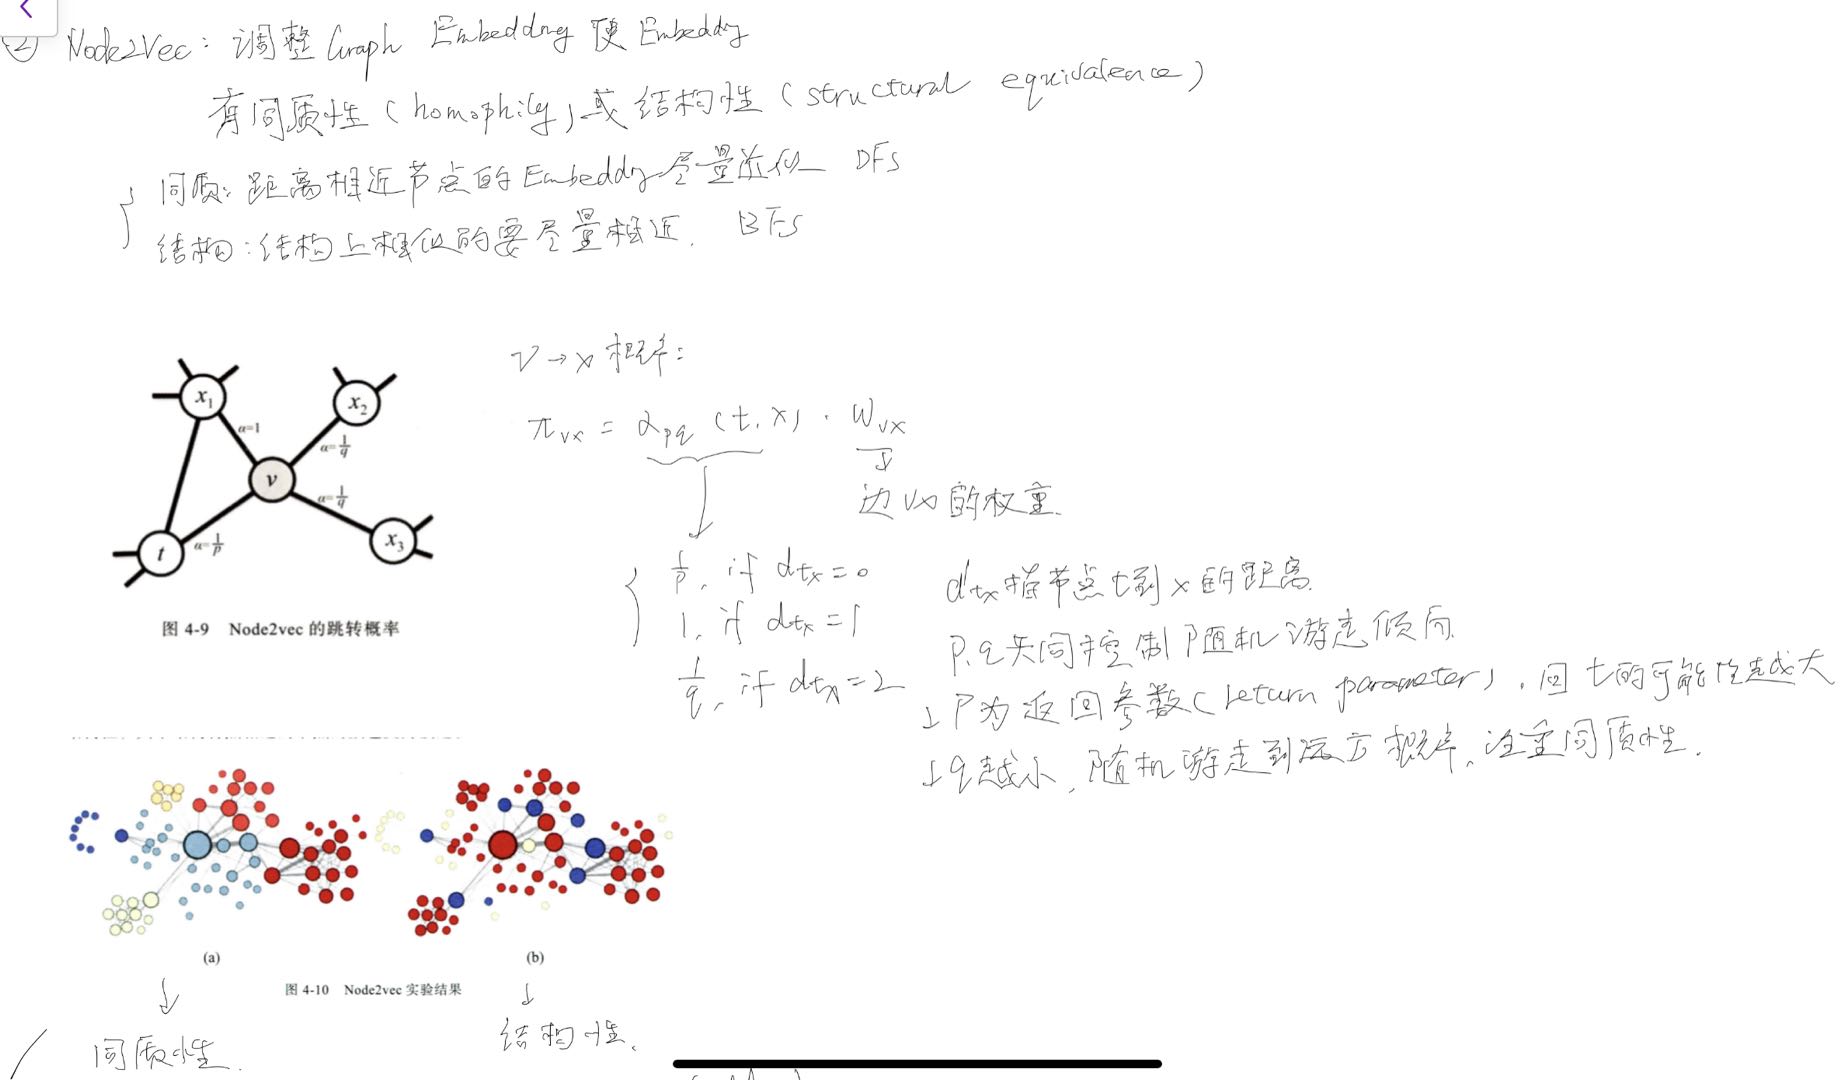 ② Node2Vec：调整Graph Embedding 使 Embedding
有同质性（homophily）或结构性（structural equivalence）
同质：距离相近节点的Embedding尽量近似 DFS
结构：结构上相似的要尽量相近. BFS
x₁
x₂
α=1
α=1/q
v
α=1/q
t
α=1/p
x₃
图 4-9 Node2vec 的跳转概率
v→x 概率：
π_vx = α_pq (t, x) · W_vx
边 vx 的权重.
1/p, if d_tx = 0
1, if d_tx = 1
1/q, if d_tx = 2
d_tx指节点t到x的距离.
p.q共同控制随机游走倾向.
↓p为返回参数（return parameter）, 回 t的可能性越大
↓q越小, 随机游走到远方概率, 注重同质性.
(a)
(b)
图 4-10 Node2vec 实验结果
↓
↓
同质性.
结构性.